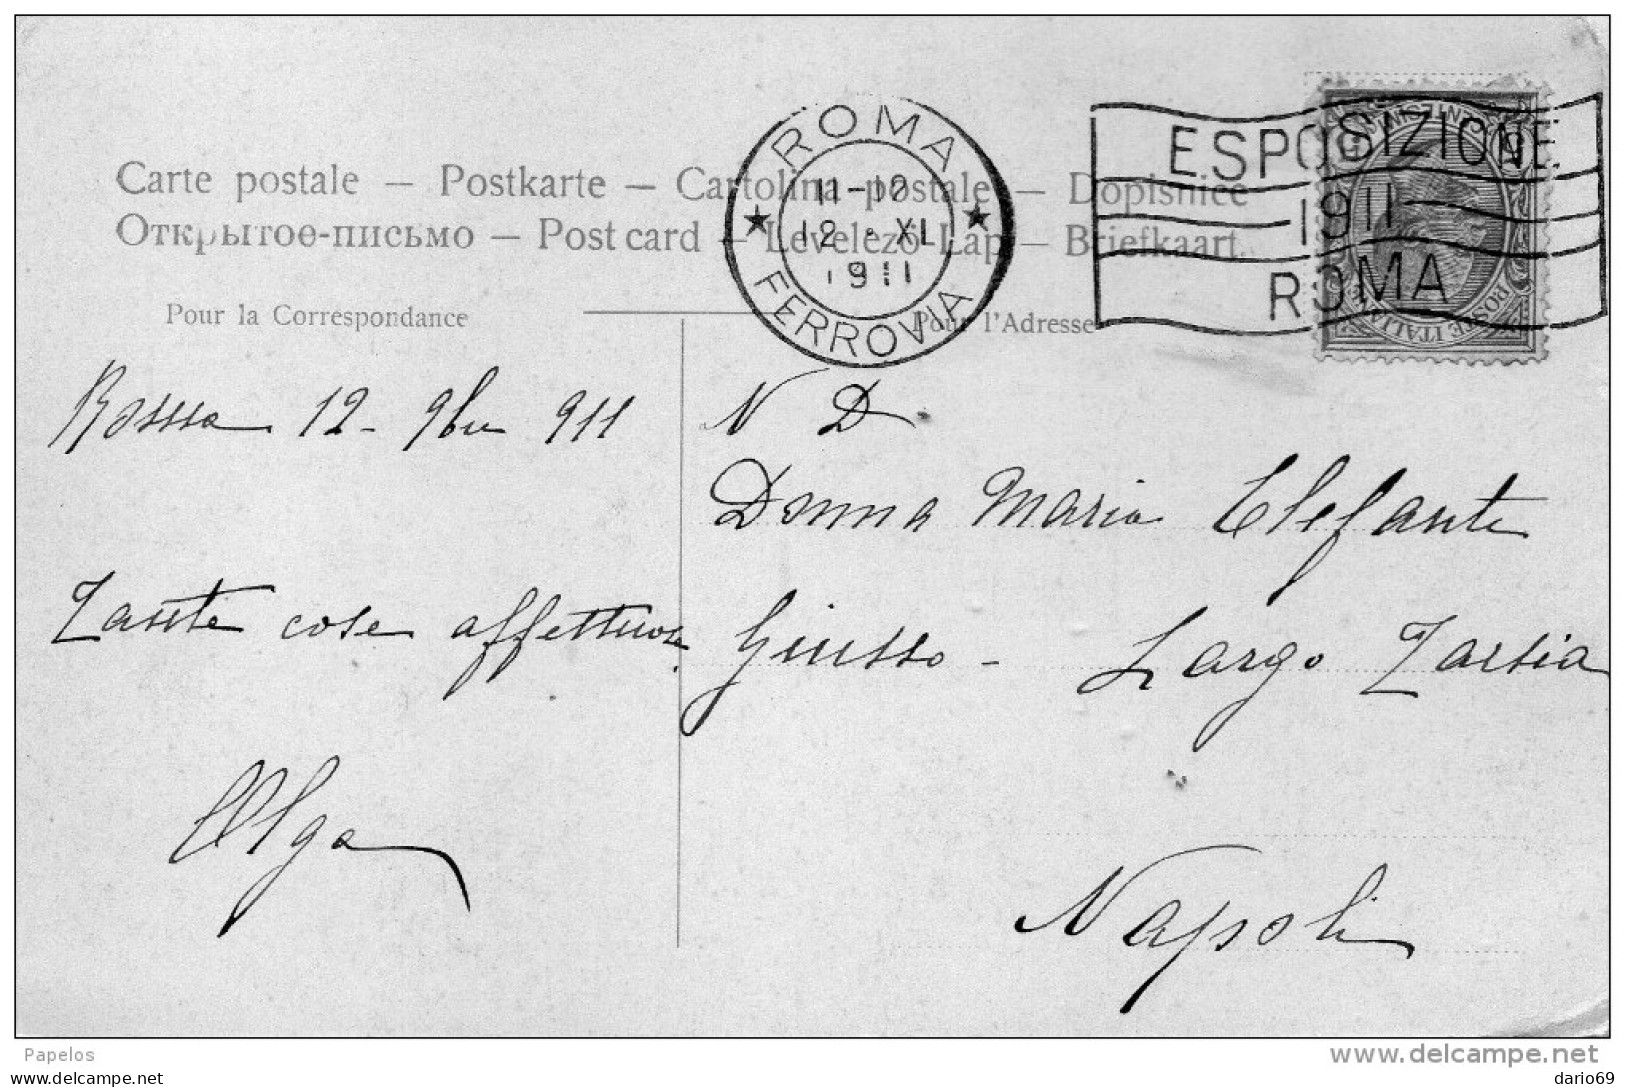 Carte postale — Postkarte — Cartolina postale — Dopisnice
Открытое-письмо — Post card — Levelező-Lap — Briefkaart.
Pour la Correspondance
Pour l'Adresse
ROMA
11-12
12 · XI
1911
FERROVIA
ESPOSIZIONE
1911
ROMA
POSTE ITALIANE
Roma 12 - 9bre 911
Tante cose affettuose
Olga
N D
Donna Maria Elefante
Giusso - Largo Tarsia
Napoli
Papelos
www.delcampe.net
dario69